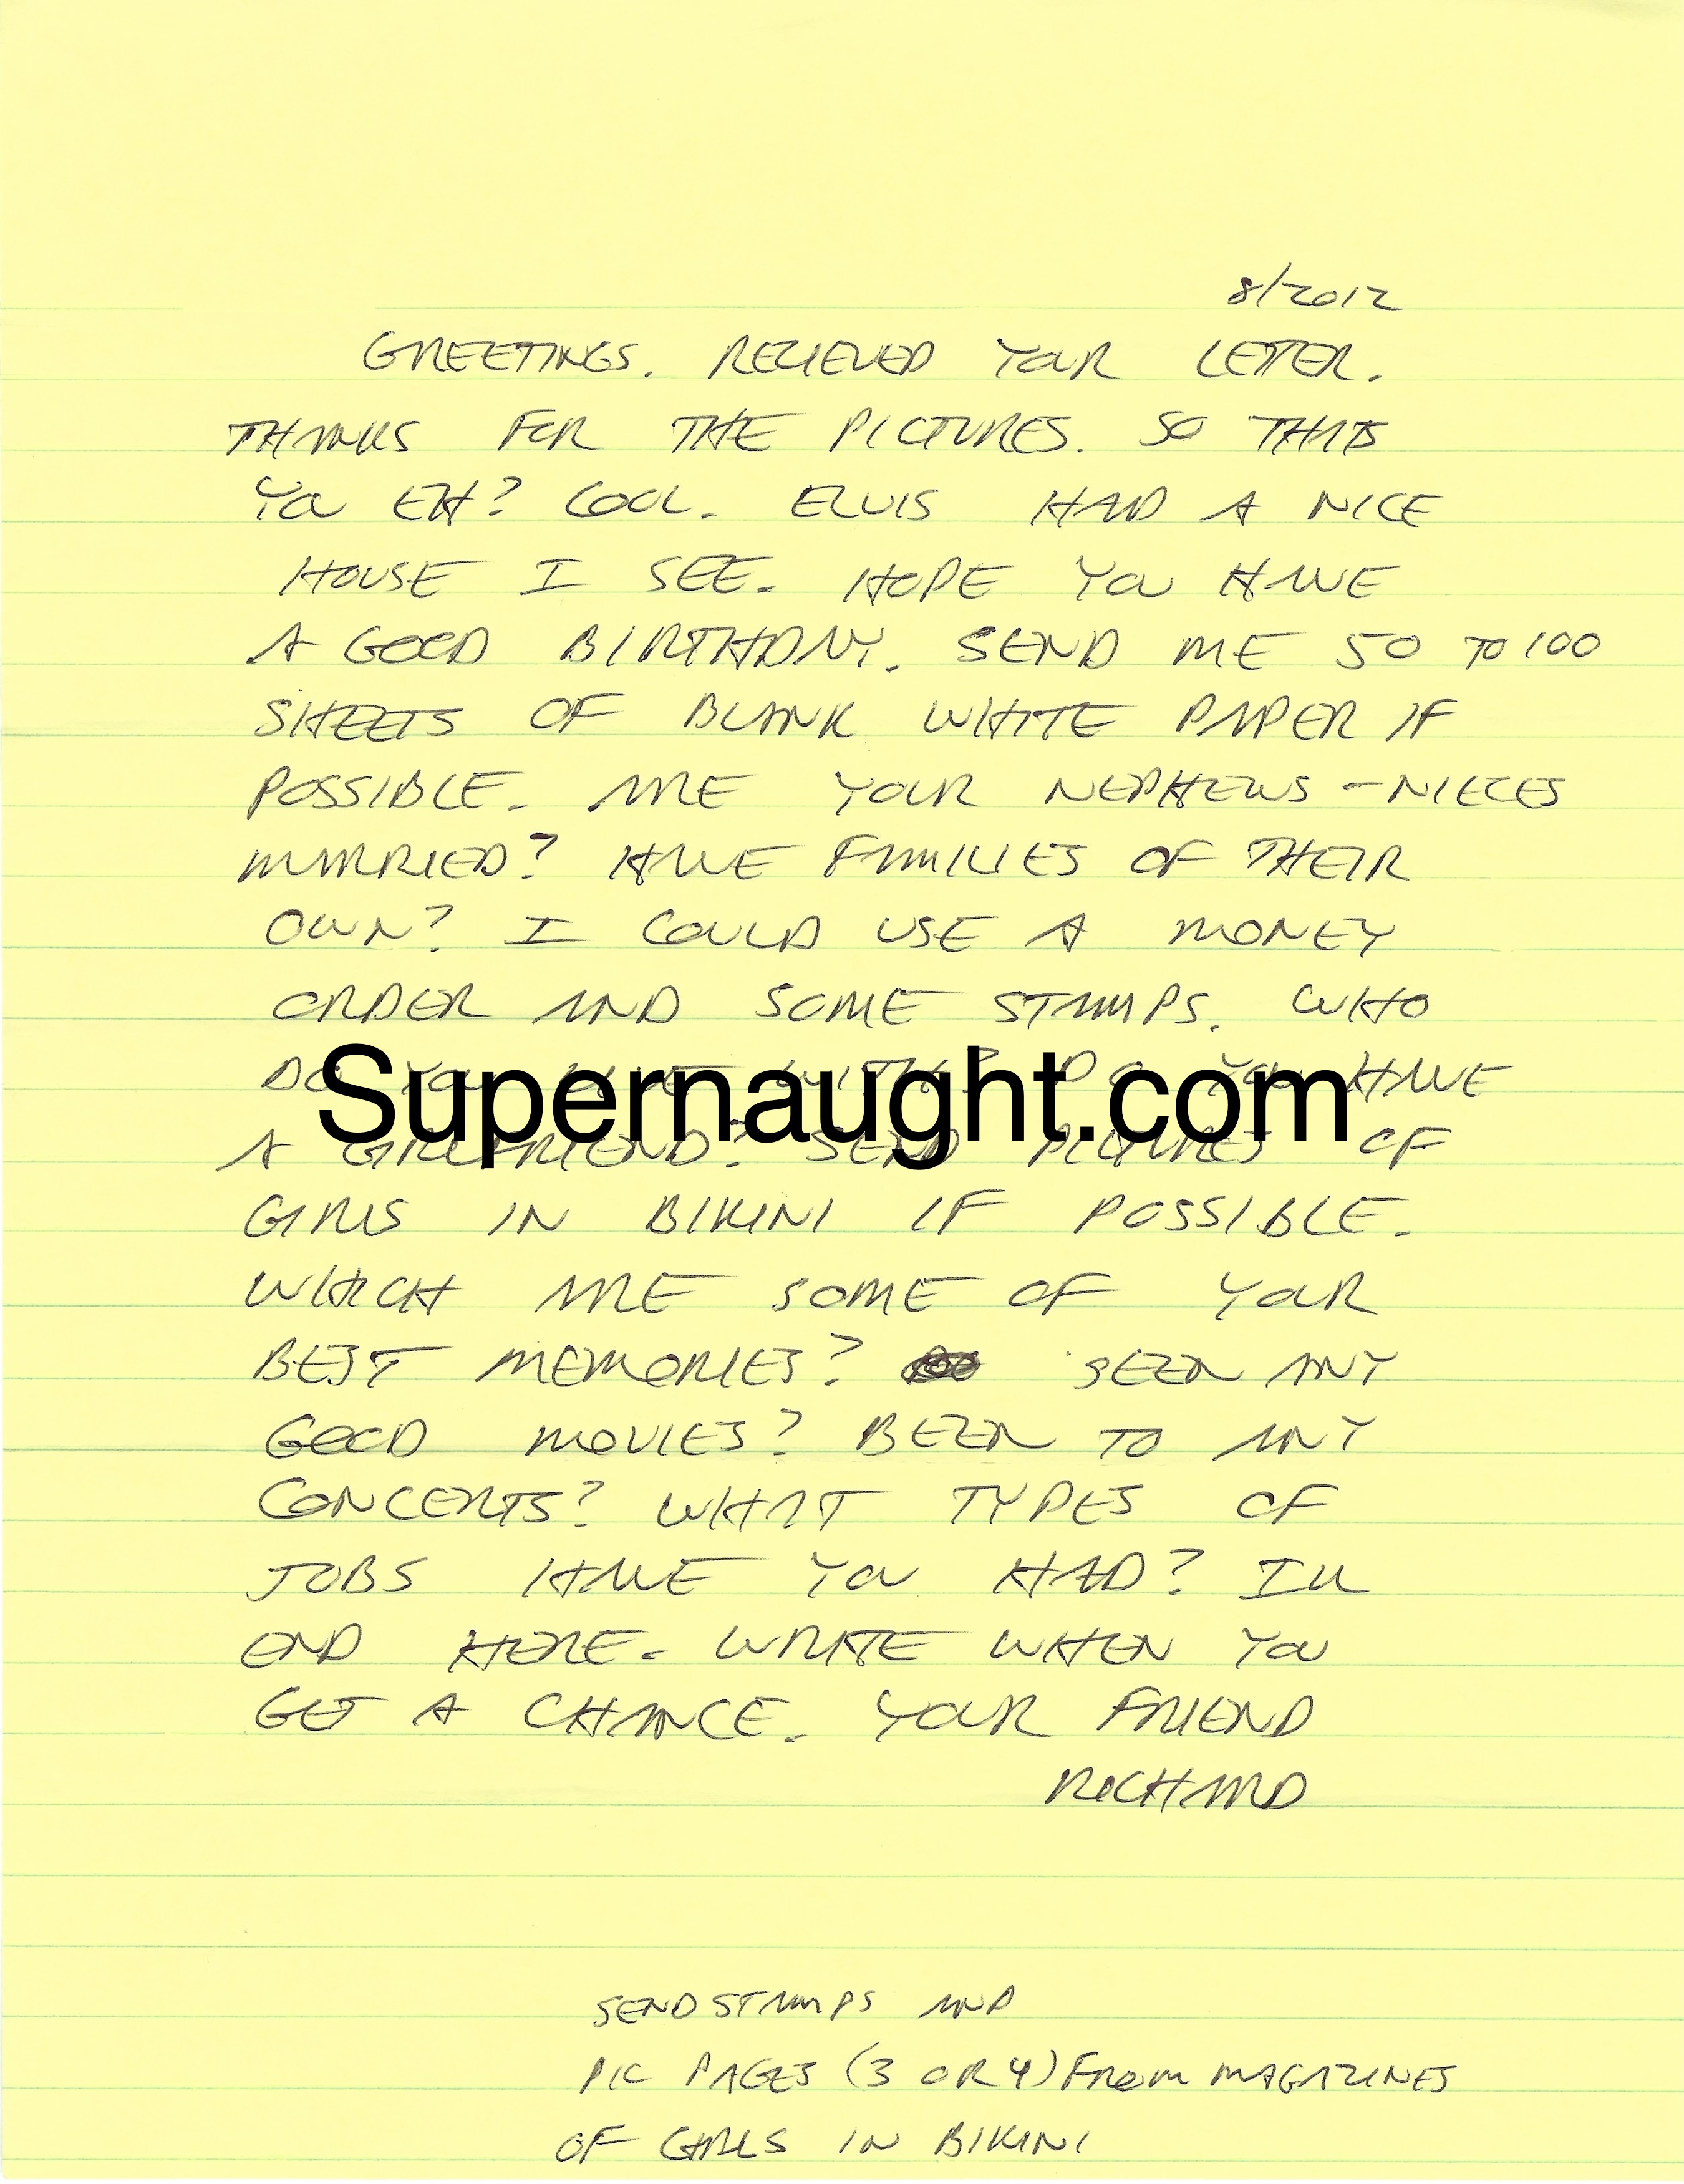 8/2012
GREETINGS. RECIEVED YOUR LETTER.
THANKS FOR THE PICTURES. SO THATS
YOU EH? COOL. ELVIS HAD A NICE
HOUSE I SEE. HOPE YOU HAVE
A GOOD BIRTHDAY. SEND ME 50 TO 100
SHEETS OF BLANK WHITE PAPER IF
POSSIBLE. ARE YOUR NEPHEWS - NIECES
MARRIED? HAVE FAMILIES OF THEIR
OWN? I COULD USE A MONEY
ORDER AND SOME STAMPS. WHO
DO YOU LIVE WITH? DO YOU HAVE
Supernaught.com
A GIRLFRIEND? SEND PICTURES OF
GIRLS IN BIKINI IF POSSIBLE.
WHICH ARE SOME OF YOUR
BEST MEMORIES? SEEN ANY
GOOD MOVIES? BEEN TO ANY
CONCERTS? WHAT TYPES OF
JOBS HAVE YOU HAD? ILL
END HERE. WRITE WHEN YOU
GET A CHANCE. YOUR FRIEND
RICHARD
SEND STAMPS AND
PIC PAGES (3 OR 4) FROM MAGAZINES
OF GIRLS IN BIKINI